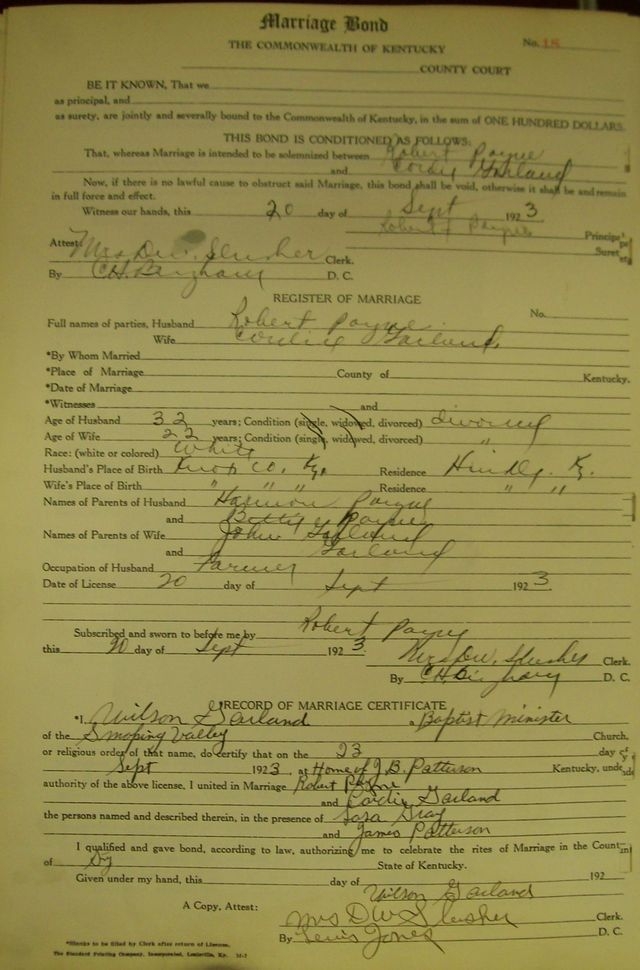 Marriage Bond
THE COMMONWEALTH OF KENTUCKY
No. 18
COUNTY COURT
BE IT KNOWN, That we
as principal, and
as surety, are jointly and severally bound to the Commonwealth of Kentucky, in the sum of ONE HUNDRED DOLLARS.
THIS BOND IS CONDITIONED AS FOLLOWS:
That, whereas Marriage is intended to be solemnized between Robert Payne
and Cordie Garland
Now, if there is no lawful cause to obstruct said Marriage, this bond shall be void, otherwise it shall be and remain
in full force and effect.
Witness our hands, this 20 day of Sept 1923
Robert Payne Principal
Suret
Attest: Mrs D.W. Slusher Clerk.
By C.H. Bingham D. C.
REGISTER OF MARRIAGE
No.
Full names of parties, Husband Robert Payne
Wife Garland
*By Whom Married
*Place of Marriage County of Kentucky.
*Date of Marriage
*Witnesses and
Age of Husband 32 years; Condition (single, widowed, divorced)
Age of Wife 22 years; Condition (single, widowed, divorced) "
Race: (white or colored) White
Husband's Place of Birth Knox Co. Ky. Residence Ky.
Wife's Place of Birth " " " Residence " "
Names of Parents of Husband Harmon Payne
and Payne
Names of Parents of Wife John Garland
and Garland
Occupation of Husband Farmer
Date of License 20 day of Sept 1923
Subscribed and sworn to before me by Robert Payne
this 20 day of Sept 1923 Mrs D.W. Slusher Clerk.
By C.H. Bingham D. C.
RECORD OF MARRIAGE CERTIFICATE
*I, Wilson Garland a Baptist Minister
of the Valley Church,
or religious order of that name, do certify that on the 23 day of
Sept 1923, at Home of J. B. Patterson Kentucky, unde
authority of the above license, I united in Marriage Robert Payne
and Cordie Garland
the persons named and described therein, in the presence of Gray
and James Patterson
I qualified and gave bond, according to law, authorizing me to celebrate the rites of Marriage in the Count
of State of Kentucky.
Given under my hand, this day of 192
Wilson Garland
A Copy, Attest: Mrs D W Slusher Clerk.
By Lewis Jones D. C.
*Blanks to be filled by Clerk after return of License.
The Standard Printing Company, Incorporated, Louisville, Ky.